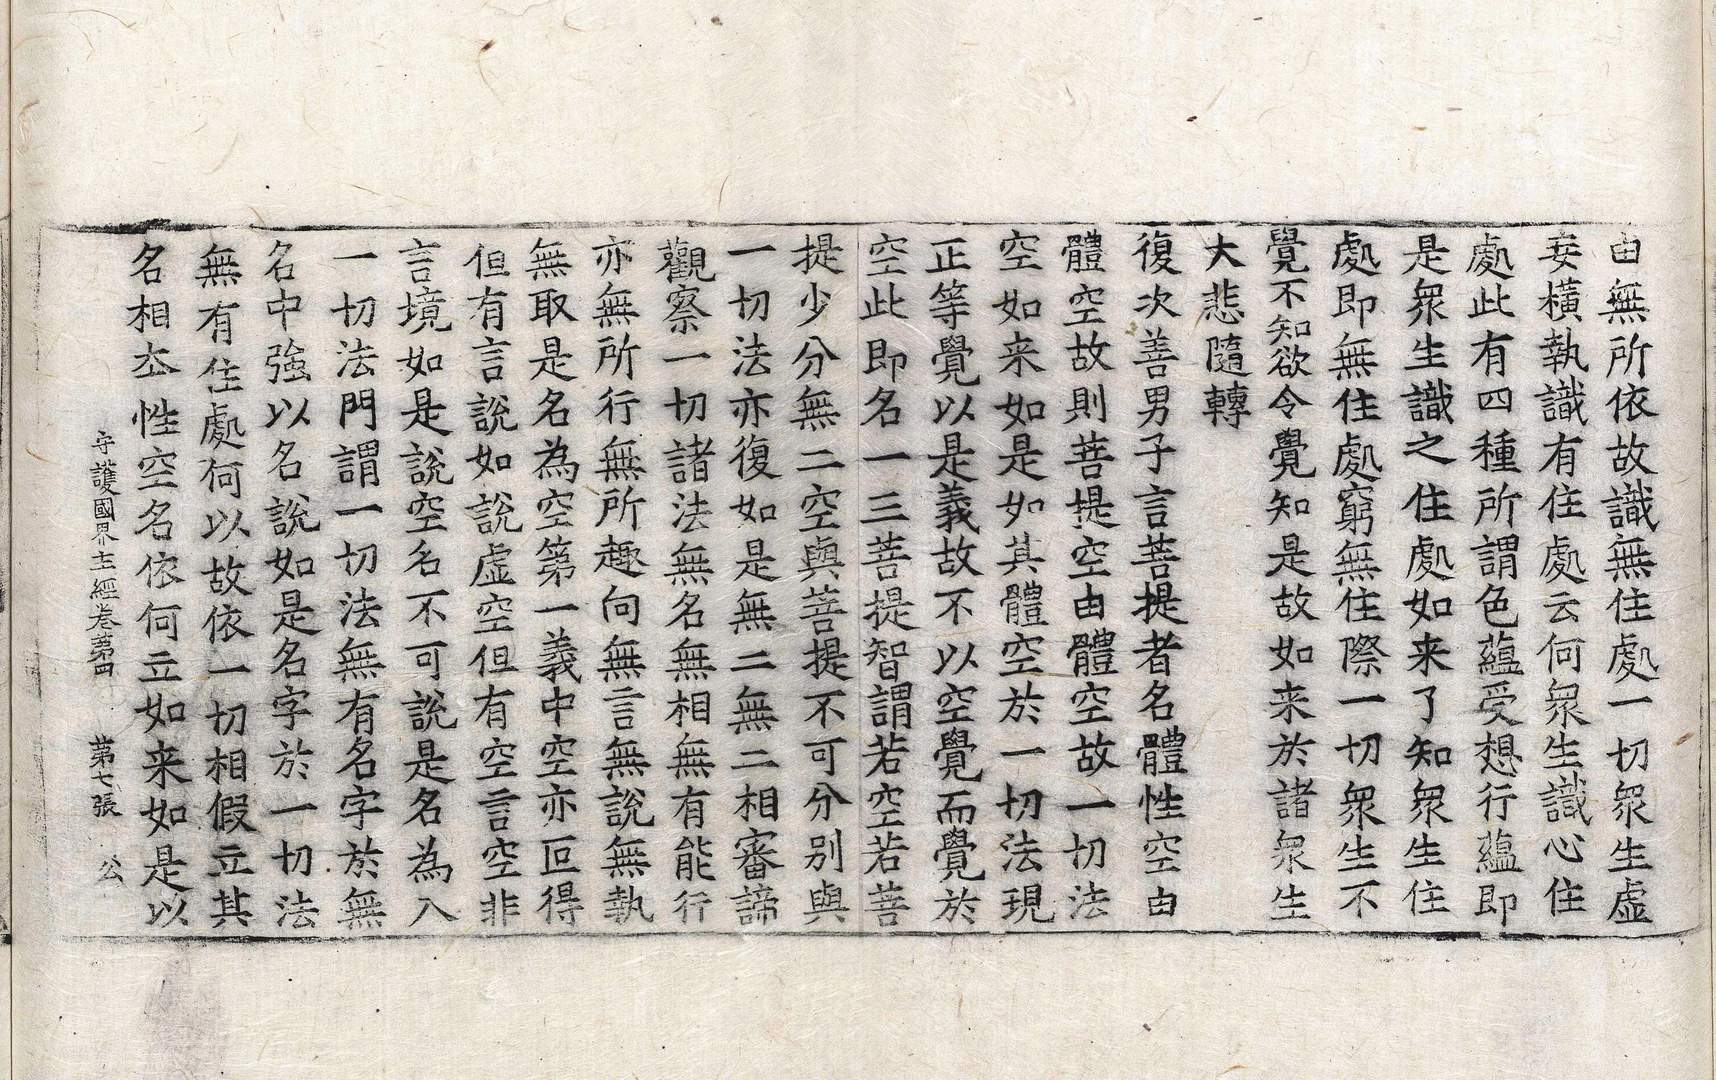 由無所依故識無住處一切衆生虛
妄橫執識有住處云何衆生識心住
處此有四種所謂色蘊受想行蘊即
是衆生識之住處如来了知衆生住
處即無住處窮無住際一切衆生不
覺不知欲令覺知是故如来於諸衆生
大悲隨轉
復次善男子言菩提者名體性空由
體空故則菩提空由體空故一切法
空如来如是如其體空於一切法現
正等覺以是義故不以空覺而覺於
空此即名一三菩提智謂若空若菩
提少分無二空與菩提不可分別與
一切法亦復如是無二無二相審諦
觀察一切諸法無名無相無有能行
亦無所行無所趣向無言無說無執
無取是名為空第一義中空亦叵得
但有言說如說虛空但有空言空非
言境如是說空名不可說是名為入
一切法門謂一切法無有名字於無
名中強以名說如是名字於一切法
無有住處何以故依一切相假立其
名相夲性空名依何立如来如是以
守護國界主經卷第四　第七張　公